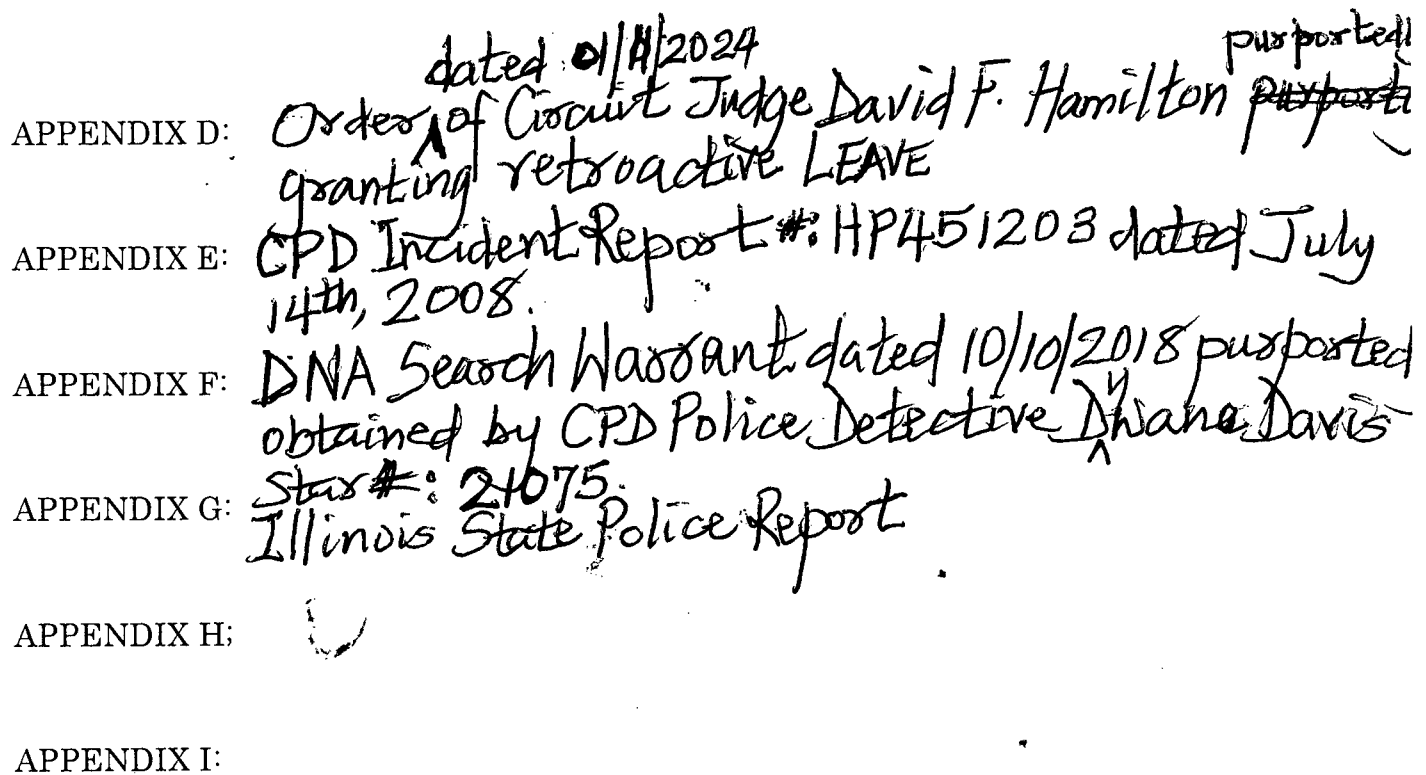 dated 01/11/2024 purportedl
APPENDIX D: Order of Circuit Judge David F. Hamilton
granting retroactive LEAVE
APPENDIX E: CPD Incident Report #: HP451203 dated July
14th, 2008.
APPENDIX F: DNA Search Warrant dated 10/10/2018 purported
obtained by CPD Police Detective Dwane Davis
Star #: 21075.
APPENDIX G: Illinois State Police Report
APPENDIX H;
APPENDIX I: